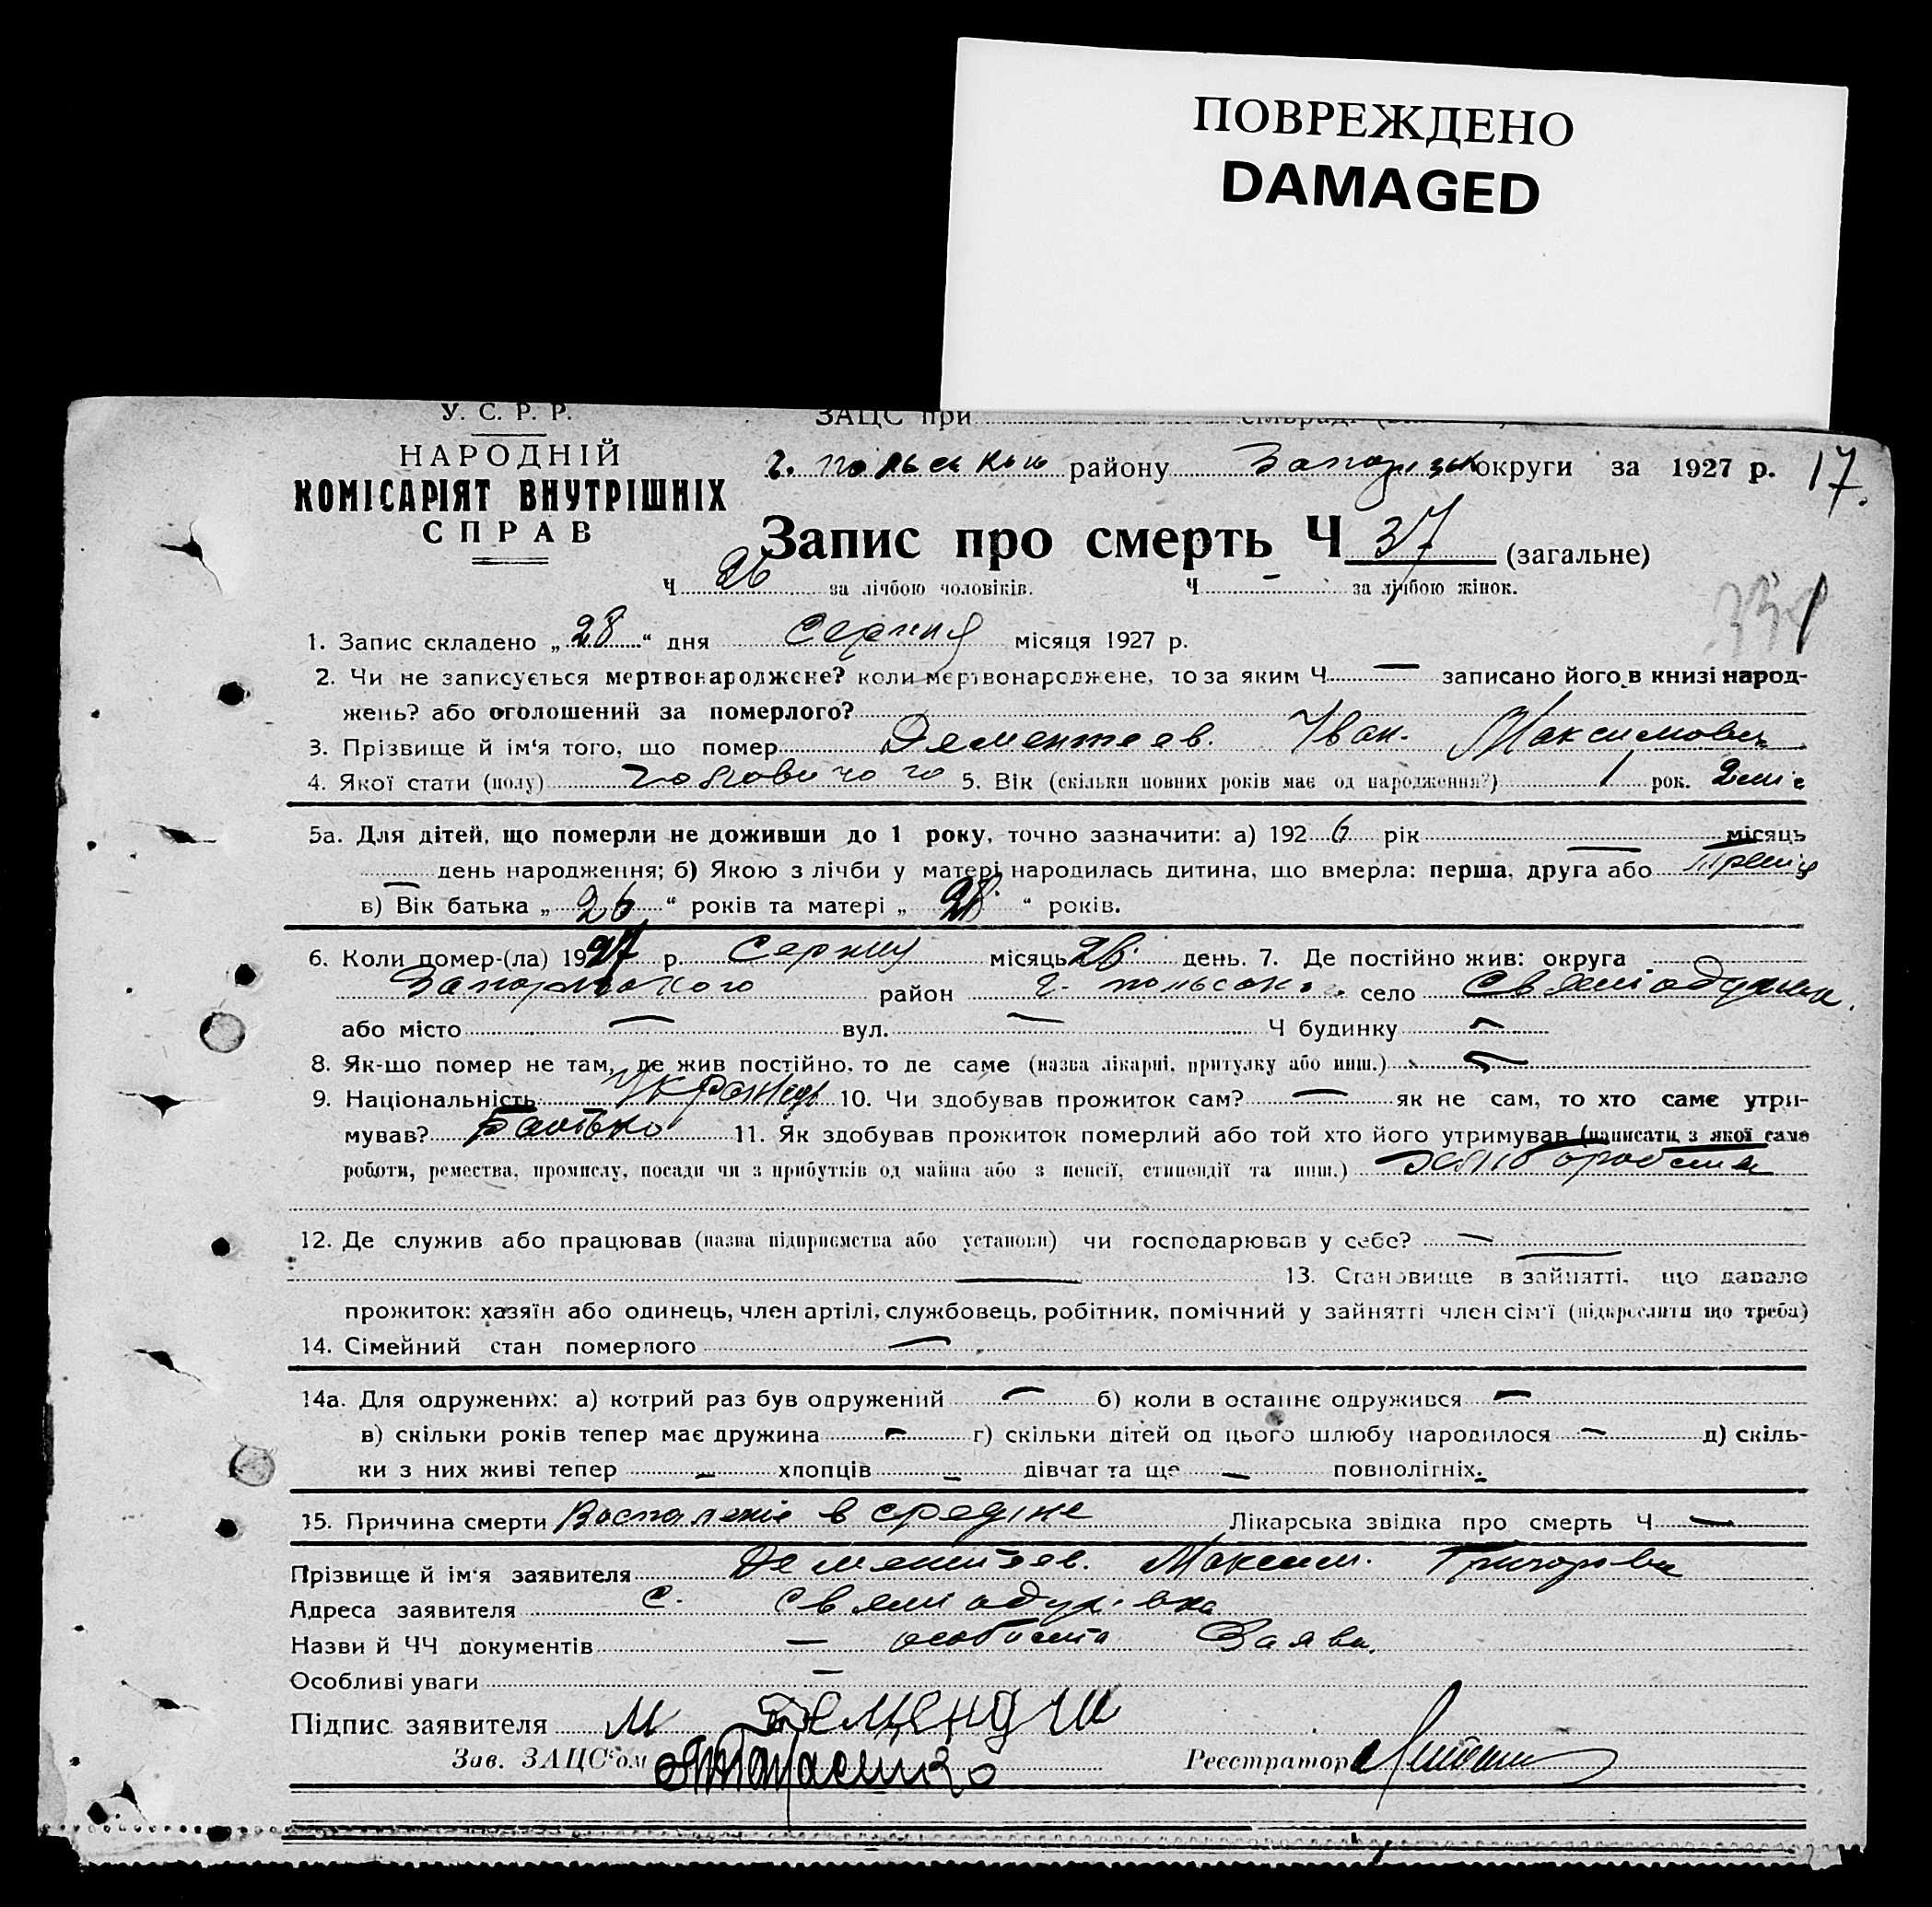 ПОВРЕЖДЕНО
DAMAGED
У. С. Р. Р.
ЗАЦС при
НАРОДНІЙ
КОМІСАРІЯТ ВНУТРІШНІХ
СПРАВ
району округи за 1927 р. 17.
Запис про смерть Ч 37 (загальне)
Ч 26 за лічбою чоловіків. Ч - за лічбою жінок.
1. Запис складено „ 28 “ дня Серпня місяця 1927 р.
2. Чи не записується мертвонароджене? коли мертвонароджене, то за яким Ч — записано його в книзі народ-
жень? або оголошений за померлого?
3. Прізвище й ім'я того, що помер Дементеев. Іван. Максимович
4. Якої стати (полу) 5. Вік (скільки повних років має од народження?) 1 рок. 2 міс
5а. Для дітей, що померли не доживши до 1 року, точно зазначити: а) 1926 рік — місяць
— день народження; б) Якою з лічби у матері народилась дитина, що вмерла: перша, друга або третя
в) Вік батька „ 26 “ років та матері „ 28 “ років.
6. Коли помер-(ла) 1927 р. Серпня місяць день. 7. Де постійно жив: округа
Запорізького район село
або місто — вул. — Ч будинку —
8. Як-що помер не там, де жив постійно, то де саме (назва лікарні, притулку або инш.) —
9. Національність Українець 10. Чи здобував прожиток сам? — як не сам, то хто саме утри-
мував? Батько 11. Як здобував прожиток померлий або той хто його утримував (написати з якої саме
роботи, ремества, промислу, посади чи з прибутків од майна або з пенсії, стипендії та инш.)
12. Де служив або працював (назва підприємства або установи) чи господарював у себе? —
— 13. Становище в зайнятті, що давало
прожиток: хазяїн або одинець, член артілі, службовець, робітник, помічний у зайнятті член сім'ї (підкреслити що треба)
14. Сімейний стан померлого —
14а. Для одружених: а) котрий раз був одружений — б) коли в останнє одружився —
в) скільки років тепер має дружина — г) скільки дітей од цього шлюбу народилося — д) скіль-
ки з них живі тепер — хлопців — дівчат та ще — повнолітніх.
15. Причина смерти Воспаленіе в средіне Лікарська звідка про смерть Ч —
Прізвище й ім'я заявителя Дементеев. Максим. Григорович
Адреса заявителя с.
Назви й ЧЧ документів — особиста Заява.
Особливі уваги —
Підпис заявителя М
Зав. ЗАЦС'ом Реєстратор